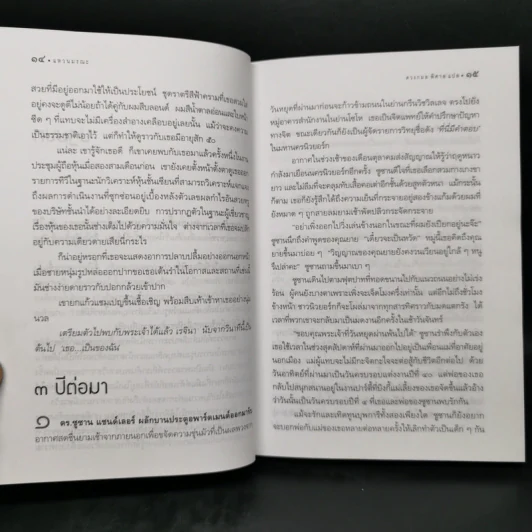 ๑๔ • แหวนมรณะ
สวยที่มีอยู่ออกมาใช้ให้เป็นประโยชน์ ชุดราตรีสีฟ้าครามที่เธอสวมใส่
อยู่คงจะดูดีไม่น้อยถ้าได้คู่กับผมสีบลอนด์ ผมสีน้ำตาลอ่อนและใบหน้า
ซีด ๆ ที่แทบจะไม่มีเครื่องสำอางเคลือบอยู่เลยนั้น แม้ว่าจะคงความ
เป็นธรรมชาติเอาไว้ แต่ก็ทำให้ดูราวกับเธอมีอายุสัก ๕๐
แน่ละ เขารู้จักเธอดี ก็เขาเคยพบกับเธอมาแล้วครั้งหนึ่งในการ
ประชุมผู้ถือหุ้นเมื่อสองสามเดือนก่อน เขายังเคยตั้งหน้าตั้งตาดูเธอออก
รายการทีวีในฐานะนักวิเคราะห์หุ้นชั้นเซียนที่สามารถวิเคราะห์แจกแจง
ผลการดำเนินงานที่ซุกซ่อนอยู่เบื้องหลังตัวเลขผลกำไรอันสวยหรู
ของบริษัทชั้นนำได้อย่างละเอียดยิบ การปรากฏตัวในฐานะผู้เชี่ยวชาญ
เรื่องหุ้นของเธอนั้นช่างเต็มไปด้วยความมั่นใจ ต่างจากเวลาที่เธอ
อยู่กับความเดียวดายเสียนี่กระไร
ก็น่าอยู่หรอกที่เธอจะแสดงอาการปลาบปลื้มอย่างออกนอกหน้า
เมื่อชายหนุ่มรูปหล่อออกปากขอเธอเต้นรำในโอกาสและสถานที่เช่นนี้
มันช่างง่ายดายราวกับปอกกล้วยเข้าปาก
เขายกแก้วแชมเปญขึ้นเชื้อเชิญ พร้อมสืบเท้าเข้าหาเธออย่างนุ่ม
นวล
เตรียมตัวไปพบกับพระเจ้าได้แล้ว เรจีนา นับจากวินาทีนี้เป็น
ต้นไป เธอ...เป็นของฉัน
๓ ปีต่อมา
๑ ดร.ซูซาน แชนด์เลอร์ ผลักบานประตูอพาร์ตเมนต์ออกมารับ
๑๕
วันหยุดที่ผ่านมาก่อนจะก้าวข้ามถนนในย่านกรีนวิชวิลเลจ ตรงไปยัง
หมู่อาคารสำนักงานในย่านโซโห เธอเป็นจิตแพทย์ที่ให้คำปรึกษาปัญหา
ทางจิต ขณะเดียวกันก็ยังเป็นผู้จัดรายการวิทยุชื่อดัง 'ที่นี่มีคำตอบ'
ในมหานครนิวยอร์ก
อากาศในช่วงเช้าของเดือนตุลาคมส่งสัญญาณให้รู้ว่าฤดูหนาว
กำลังมาเยือนนครนิวยอร์กอีกครั้ง ซูซานดีใจที่เธอเลือกสวมกางเกงขา
ยาว และไม่ลืมที่จะคลุมทับเสื้อคอเต่าอีกชั้นด้วยสูทตัวหนา แม้กระนั้น
ก็ตาม เธอก็ยังรู้สึกได้ถึงความเย็นที่กระจายอยู่สองข้างแก้มด้วยผมที่
ยังหมาด ๆ ถูกสายลมยามเช้าพัดปลิวกระจัดกระจาย
"อย่าเพิ่งออกไปวิ่งเล่นข้างนอกในขณะที่ผมยังเปียกอยู่นะจ๊ะ"
ซูซานนึกถึงคำพูดของคุณยาย "เดี๋ยวจะเป็นหวัด" หมู่นี้เธอคิดถึงคุณ
ยายขึ้นมาบ่อย ๆ "วิญญาณของคุณยายยังคงวนเวียนอยู่ใกล้ ๆ หนู
รึเปล่าคะ" ซูซานถามขึ้นมาเบา ๆ
ซูซานเดินไปตามฟุตปาทที่ทอดขนานไปกับแนวถนนอย่างไม่เร่ง
ร้อน ผู้คนยังบางตาเพราะเพิ่งจะเจ็ดโมงครึ่งเท่านั้น แต่อีกไม่ถึงชั่วโมง
ข้างหน้า ชาวนิวยอร์กก็จะโผล่มาจากทุกสารทิศราวกับมดแตกรัง ได้
เวลาที่พวกเขาจะกลับมาเป็นมดงานอีกครั้งในเช้าวันจันทร์
"ขอบคุณพระเจ้าที่วันหยุดผ่านพ้นไปได้" ซูซานพึมพำกับตัวเอง
เธอใช้เวลาในช่วงสุดสัปดาห์ที่ผ่านมาออกไปอยู่เป็นเพื่อนแม่ที่อาศัยอยู่
นอกเมือง แม่ผู้แทบจะไม่มีกะจิตกะใจจะต่อสู้กับชีวิตอีกต่อไป ด้วย
วันอาทิตย์ที่ผ่านมาเป็นวันครบรอบแต่งงานปีที่ ๔๐ แต่พ่อของเธอ
กลับไปสนุกสนานอยู่ในงานปาร์ตี้
ว่าวันนั้นเป็นวันครบรอบปีที่ ๔ ที่เธอและพ่อของซูซานพบรักกัน
แม้จะรักและเทิดทูนบุพการีทั้งสองเพียงใด ซูซานก็ยังอยาก
จะบอกพ่อกับแม่ของเธอหลายต่อหลายครั้งให้เลิกทำตัวเป็นเด็ก ๆ กัน